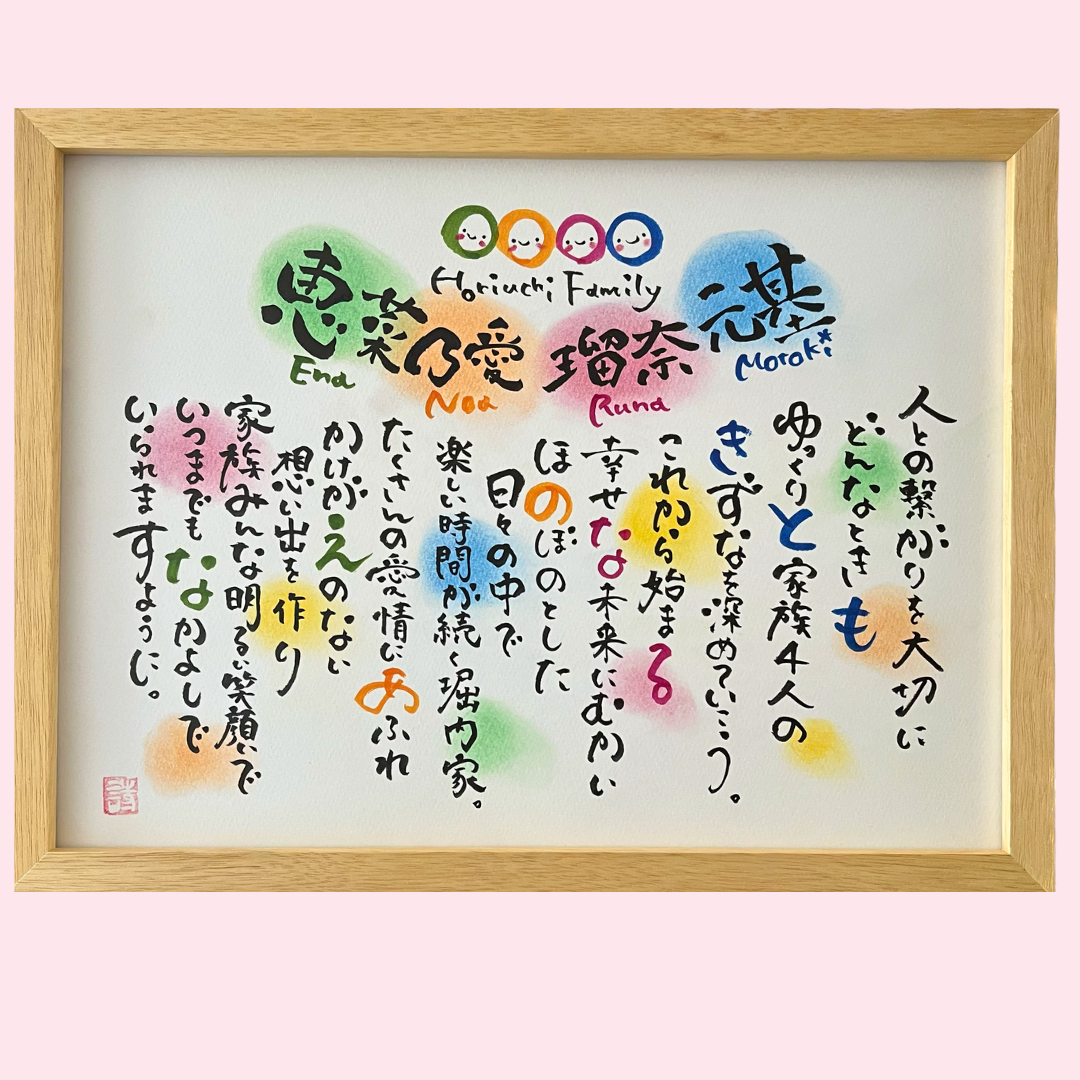 Horiuchi Family
元基
Motoki
瑠奈
Runa
乃愛
Noa
恵菜
Ena
人との繋がりを大切に
どんなときも
ゆっくりと家族4人の
きずなを深めていこう。
これから始まる
幸せな未来にむかい
ほのぼのとした
日々の中で
楽しい時間が続く堀内家。
たくさんの愛情にあふれ
かけがえのない
想い出を作り
家族みんな明るい笑顔で
いつまでもなかよしで
いられますように。
詩